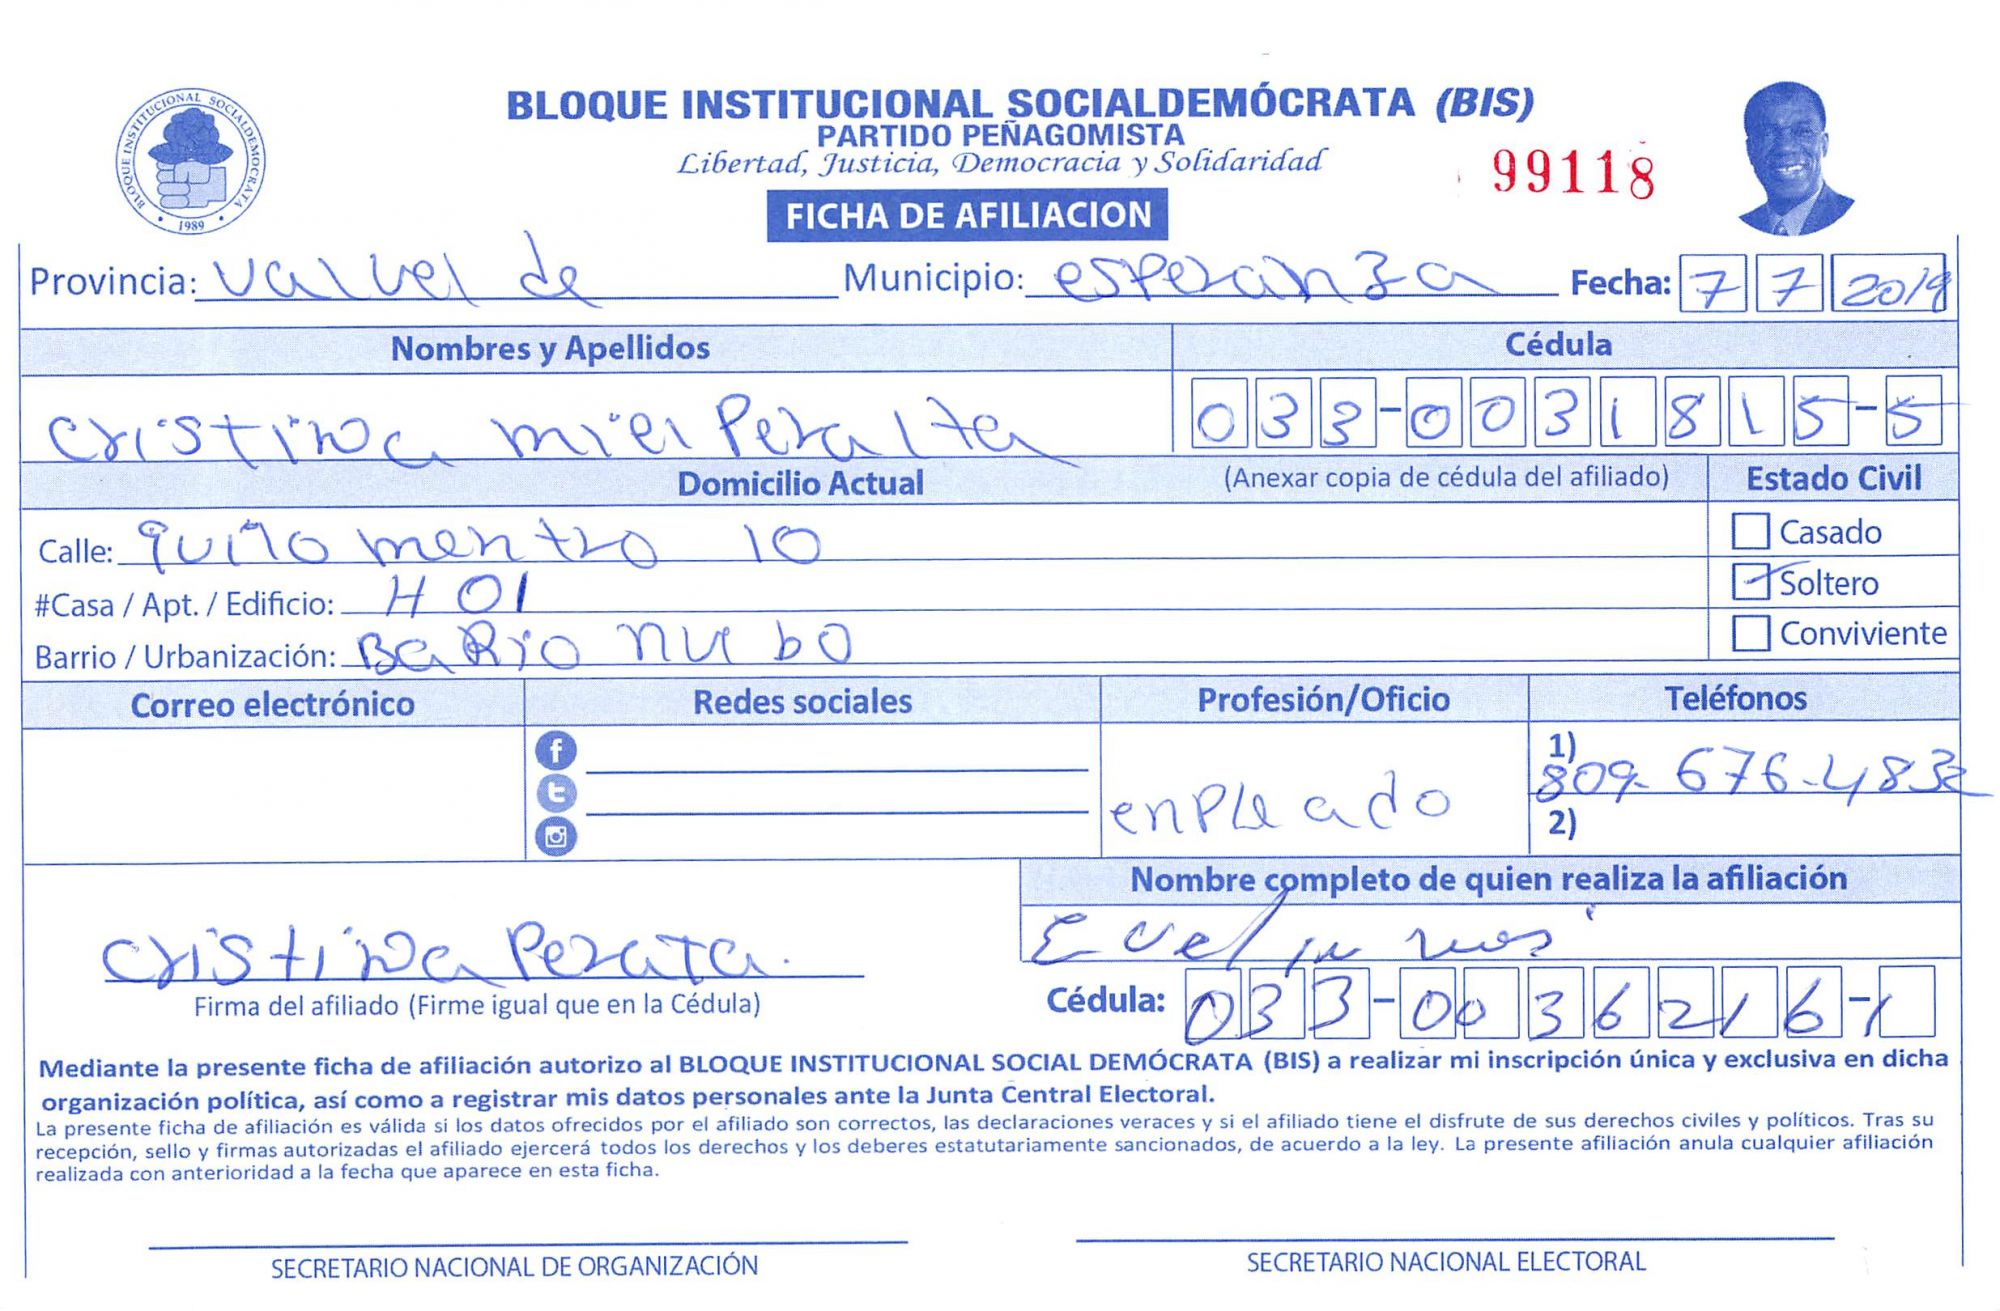 BLOQUE INSTITUCIONAL SOCIALDEMÓCRATA (BIS)
PARTIDO PEÑAGOMISTA
Libertad, Justicia, Democracia y Solidaridad
99118
BLOQUE INSTITUCIONAL SOCIALDEMOCRATA
1989
FICHA DE AFILIACION
Provincia: Valvel de Municipio: esperanza Fecha: 7 7 2019
Nombres y Apellidos Cédula
Cristina miel Peralta 033-0031815-5
Domicilio Actual (Anexar copia de cédula del afiliado) Estado Civil
Calle: quilo mentro 10 Casado
#Casa / Apt. / Edificio: H 01 Soltero
Barrio / Urbanización: BaRio nuebo Conviviente
Correo electrónico Redes sociales Profesión/Oficio Teléfonos
1) 809-676-4832
enpleado
2)
Nombre completo de quien realiza la afiliación
Evelin
Cristina Perata.
Firma del afiliado (Firme igual que en la Cédula) Cédula: 033-0036216-1
Mediante la presente ficha de afiliación autorizo al BLOQUE INSTITUCIONAL SOCIAL DEMÓCRATA (BIS) a realizar mi inscripción única y exclusiva en dicha
organización política, así como a registrar mis datos personales ante la Junta Central Electoral.
La presente ficha de afiliación es válida si los datos ofrecidos por el afiliado son correctos, las declaraciones veraces y si el afiliado tiene el disfrute de sus derechos civiles y políticos. Tras su
recepción, sello y firmas autorizadas el afiliado ejercerá todos los derechos y los deberes estatutariamente sancionados, de acuerdo a la ley. La presente afiliación anula cualquier afiliación
realizada con anterioridad a la fecha que aparece en esta ficha.
SECRETARIO NACIONAL DE ORGANIZACIÓN SECRETARIO NACIONAL ELECTORAL